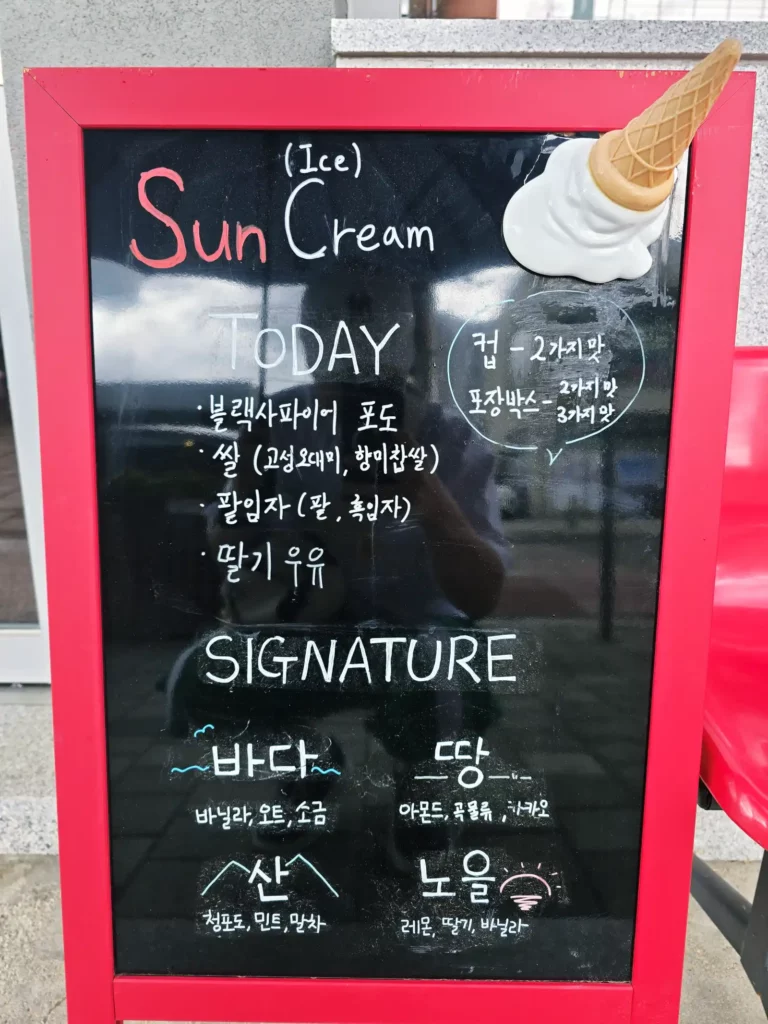 (Ice)
Sun Cream
TODAY
컵 - 2가지 맛
포장박스 - 2가지 맛
3가지 맛
· 블랙사파이어 포도
· 쌀 (고성오대미, 향미찹쌀)
· 팥임자 (팥, 흑임자)
· 딸기 우유
SIGNATURE
바다
바닐라, 오트, 소금
땅
아몬드, 곡물류, 카카오
산
청포도, 민트, 말차
노을
레몬, 딸기, 바닐라